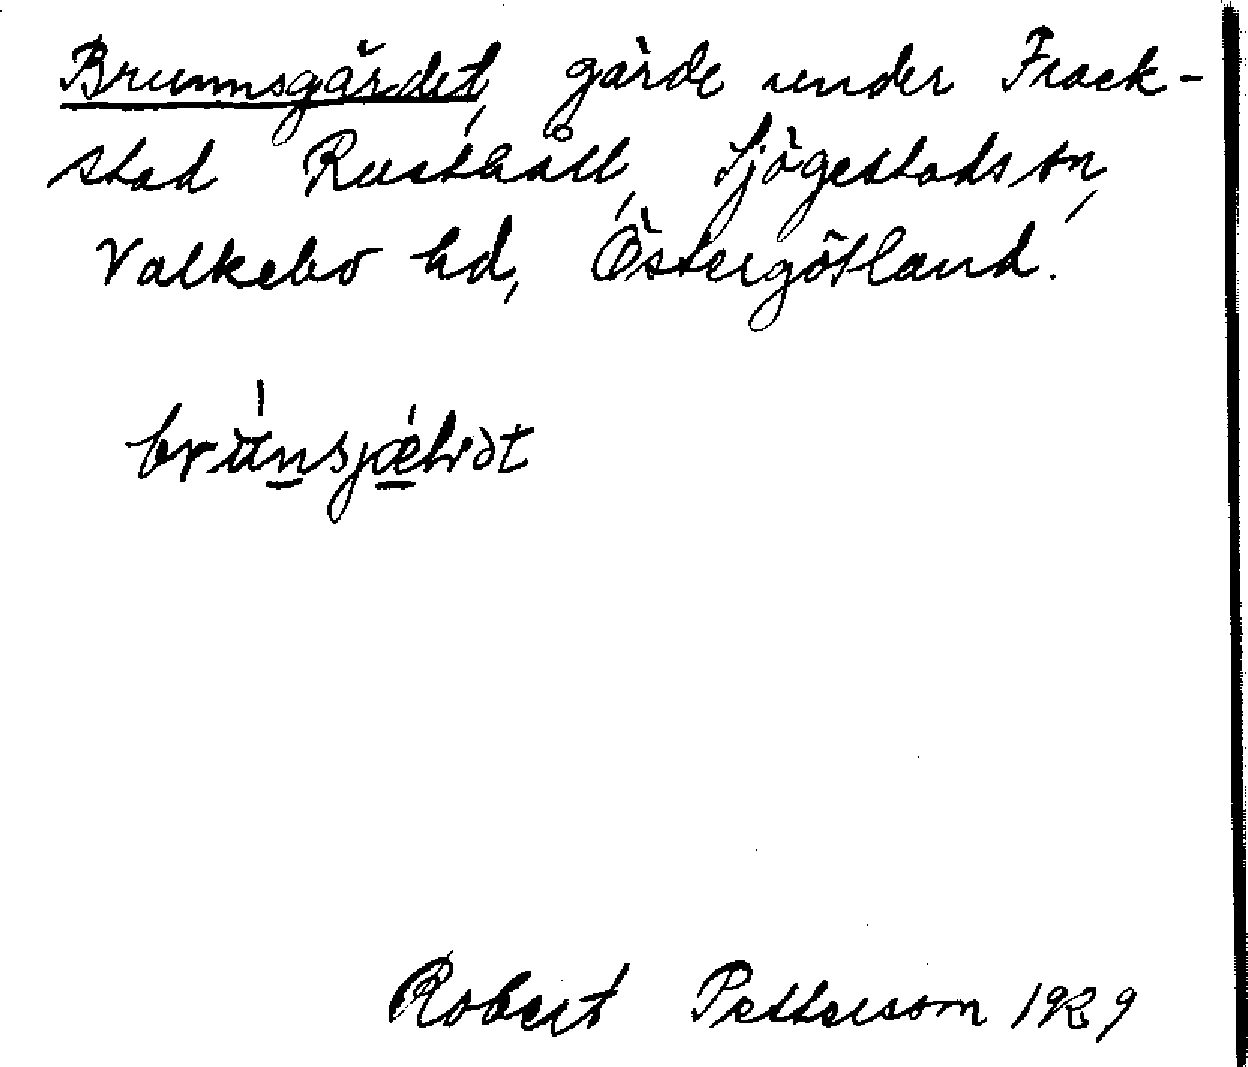 Brunnsgärdet, gärde under Frack-
stad Rusthåll, Sjögestads sn,
Valkebo hd, Östergötland.
Robert Petterson 1929